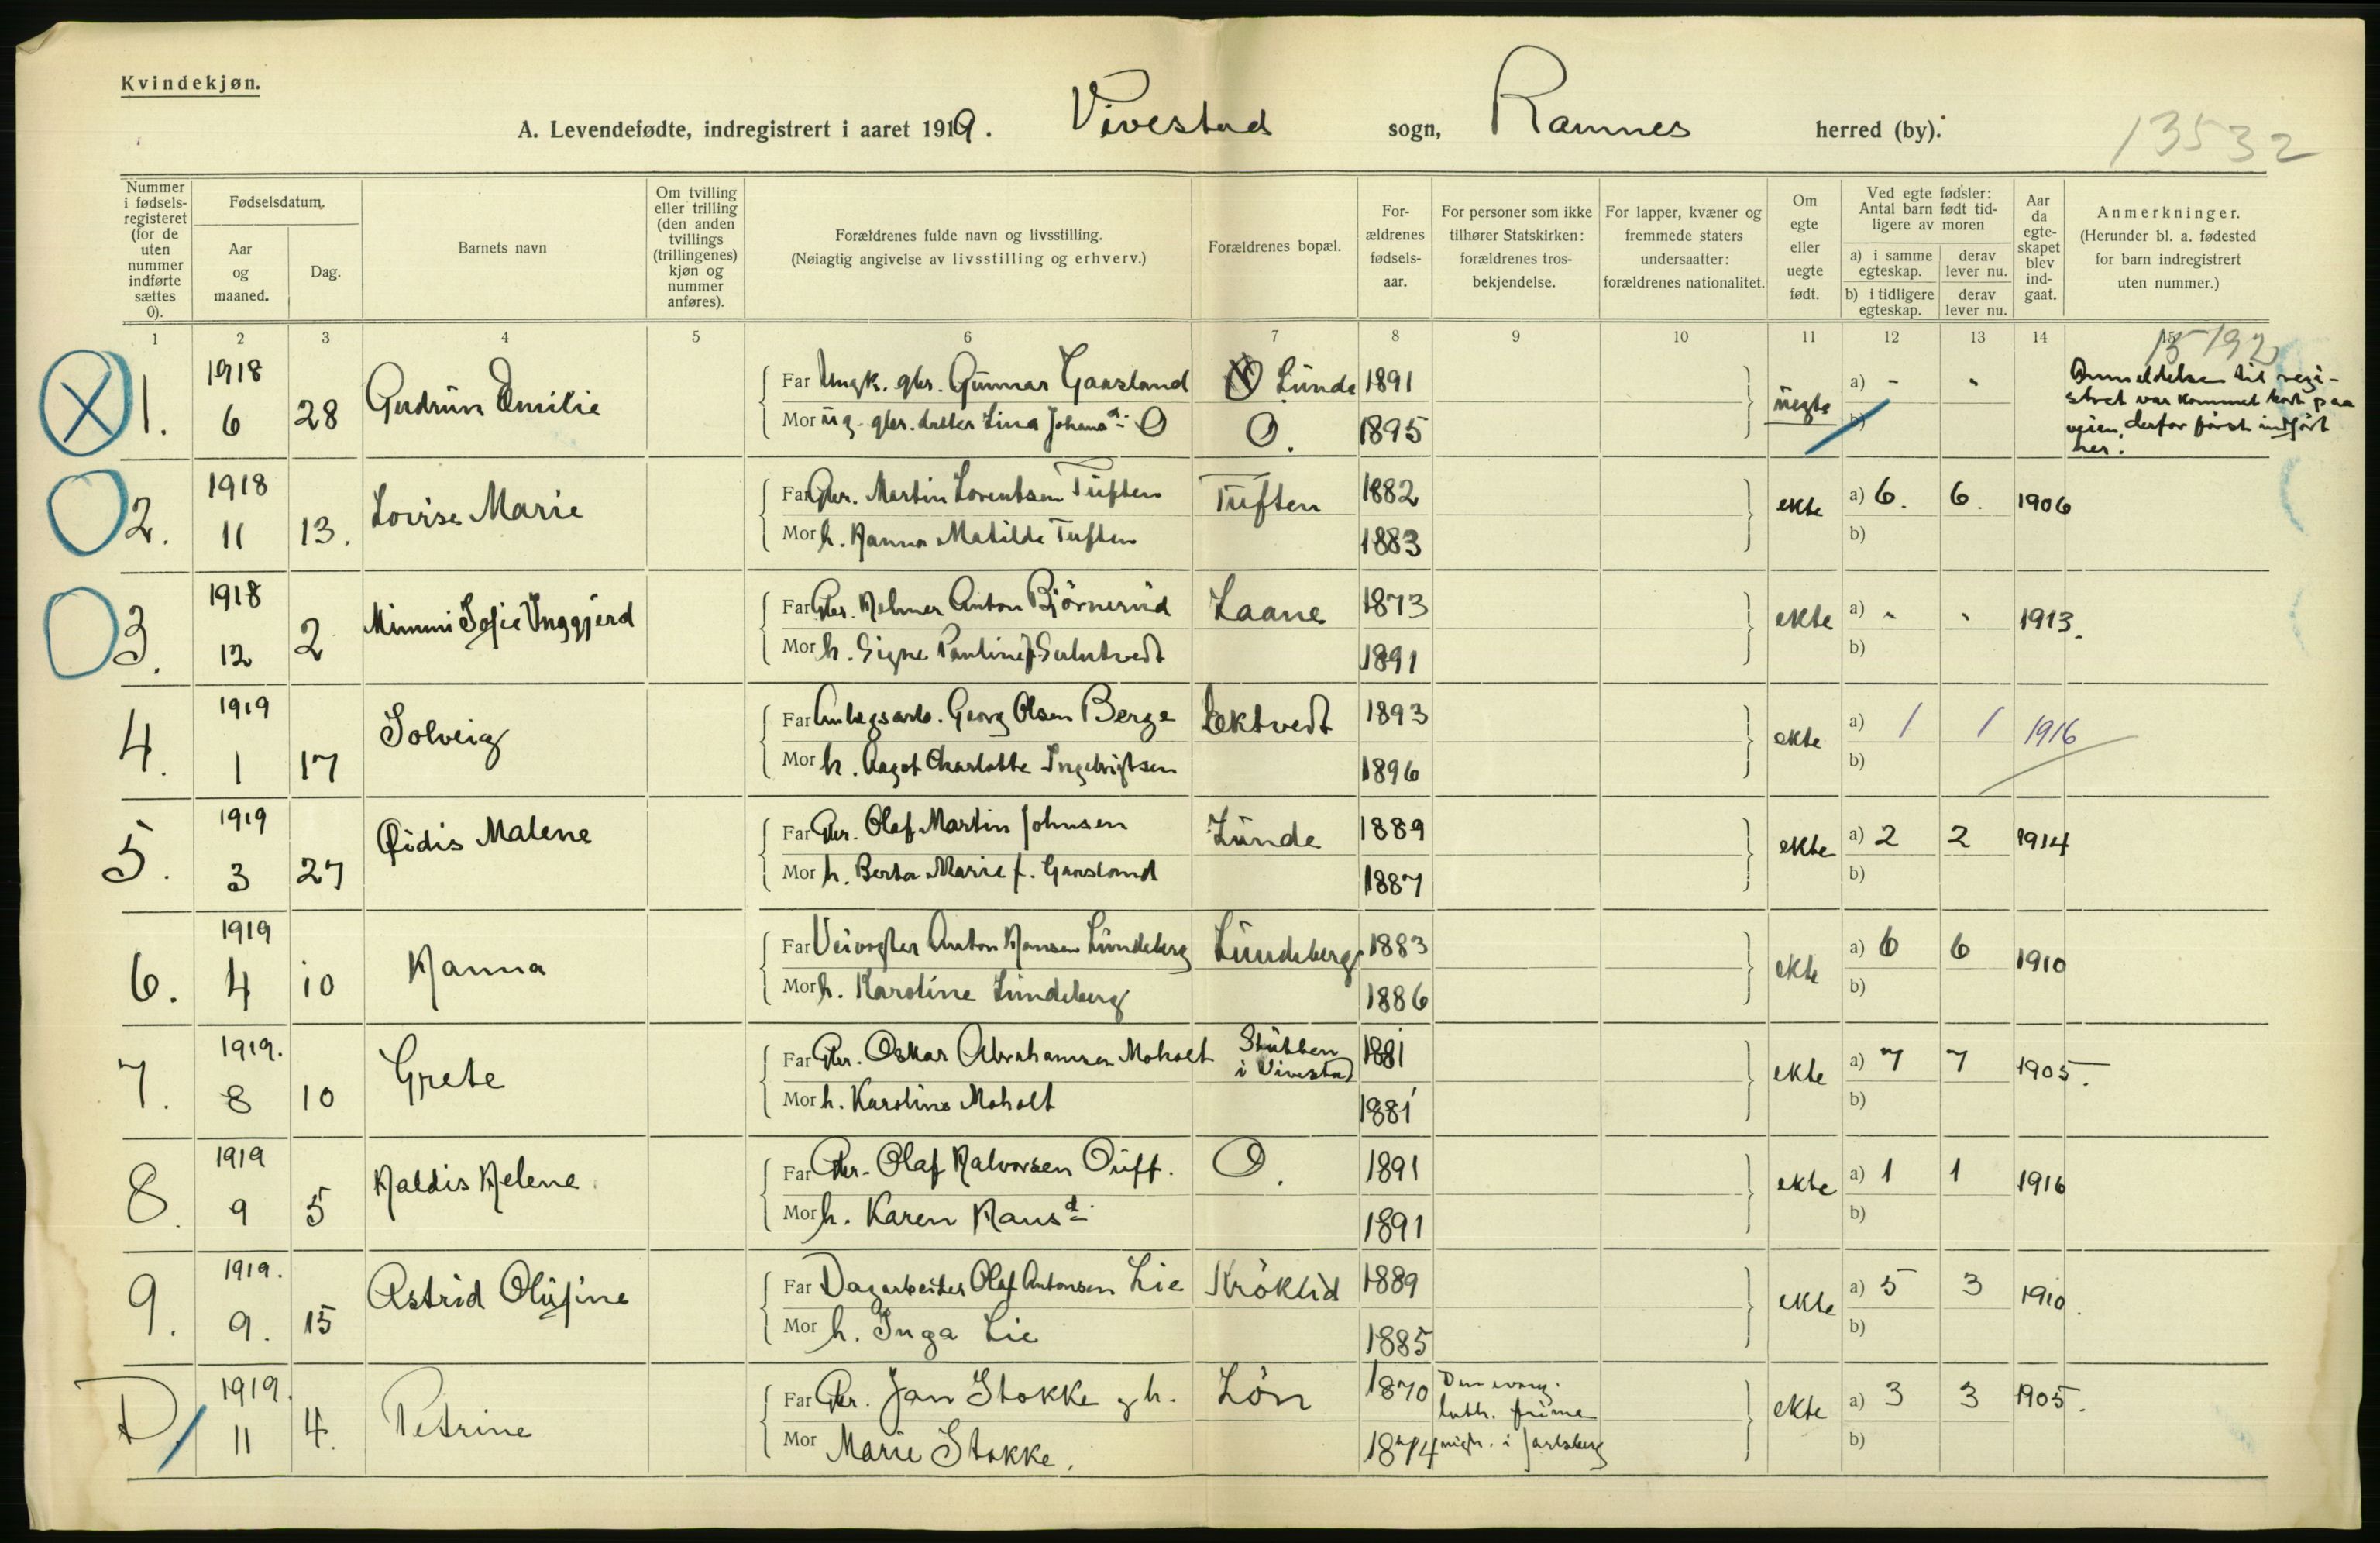 Kvindekjøn.
A. Levendefødte, indregistrert i aaret 1919. Vivestad sogn, Ramnes herred (by).
13532
Nummer i fødsels-registeret (for de uten nummer indførte sættes 0).
Fødselsdatum.
Aar og maaned.
Dag.
Barnets navn
Om tvilling eller trilling (den anden tvillings (trillingenes) kjøn og nummer anføres).
Forældrenes fulde navn og livsstilling.
(Nøiagtig angivelse av livsstilling og erhverv.)
Forældrenes bopæl.
For-ældrenes fødsels-aar.
For personer som ikke tilhører Statskirken: forældrenes tros-bekjendelse.
For lapper, kvæner og fremmede staters undersaatter: forældrenes nationalitet.
Om egte eller uegte født.
Ved egte fødsler: Antal barn født tid-ligere av moren
a) i samme egteskap. derav lever nu.
b) i tidligere egteskap. derav lever nu.
Aar da egte-skapet blev ind-gaat.
Anmerkninger.
(Herunder bl. a. fødested for barn indregistrert uten nummer.)
1 2 3 4 5 6 7 8 9 10 11 12 13 14 15
1. 1918 6 28 Gudrün Emilie
Far Ungk. gbr. Gunnar Gaasland Lünde 1891
Mor ug. gbr. datter Lina Johans d. O O. 1895
üegte a) - - b)
Anmeldelsen til regi-
stret var kommet bort paa
veien, derfor først indført
her.
2. 1918 11 13. Lovise Marie
Far Gbr. Martin Lorentsen Tüften Tüften 1882
Mor h. Hanna Matilde Tuften 1883
ekte a) 6. 6. 1906 b)
3. 1918 12 2 Mimmi Sofie Inggjerd
Far Gbr. Helmer Anton Björnerüd Laane 1873
Mor h. Signe Pauline f. 1891
ekte a) - - 1913. b)
4. 1919 1 17 Solveig
Far Anlegsarb. Georg Olsen Berge Ektvedt 1893
Mor h. Aagot Charlotte Ingebrigtsen 1896
ekte a) 1 1 1916 b)
5. 1919 3 27 Öidis Malene
Far Gbr. Olaf Martin Johnsen Lünde 1889
Mor h. Berta Marie f. Gaasland 1887
ekte a) 2 2 1914 b)
6. 1919 4 10 Hanna
Far Veivogter Anton Hansen Lündeberg Lündeberg 1883
Mor h. Karoline Lundeberg 1886
ekte a) 6 6 1910 b)
7. 1919. 8 10 Grete
Far Gbr. Oskar Abrahamsen Moholt Stübben i Vivestad 1881
Mor h. Karoline Moholt 1881
ekte a) 7 7 1905. b)
8. 1919 9 5 Haldis Helene
Far Gbr. Olaf Halvorsen O. 1891
Mor h. Karen Hans d. 1891
ekte a) 1 1 1916 b)
9. 1919. 9. 15 Astrid Olüfine
Far Dagarbeider Olaf Antonsen Lie Kröklid 1889
Mor h. Inga Lie 1885
ekte a) 5 3 1910. b)
D. 1919. 11 4. Petrine
Far Gbr. Jan Stokke og h. Lön 1870 Den evang.
luth. frime
Mor Marie Stokke. 1874 nigh. i Jarlsberg
ekte a) 3 3 1905. b)